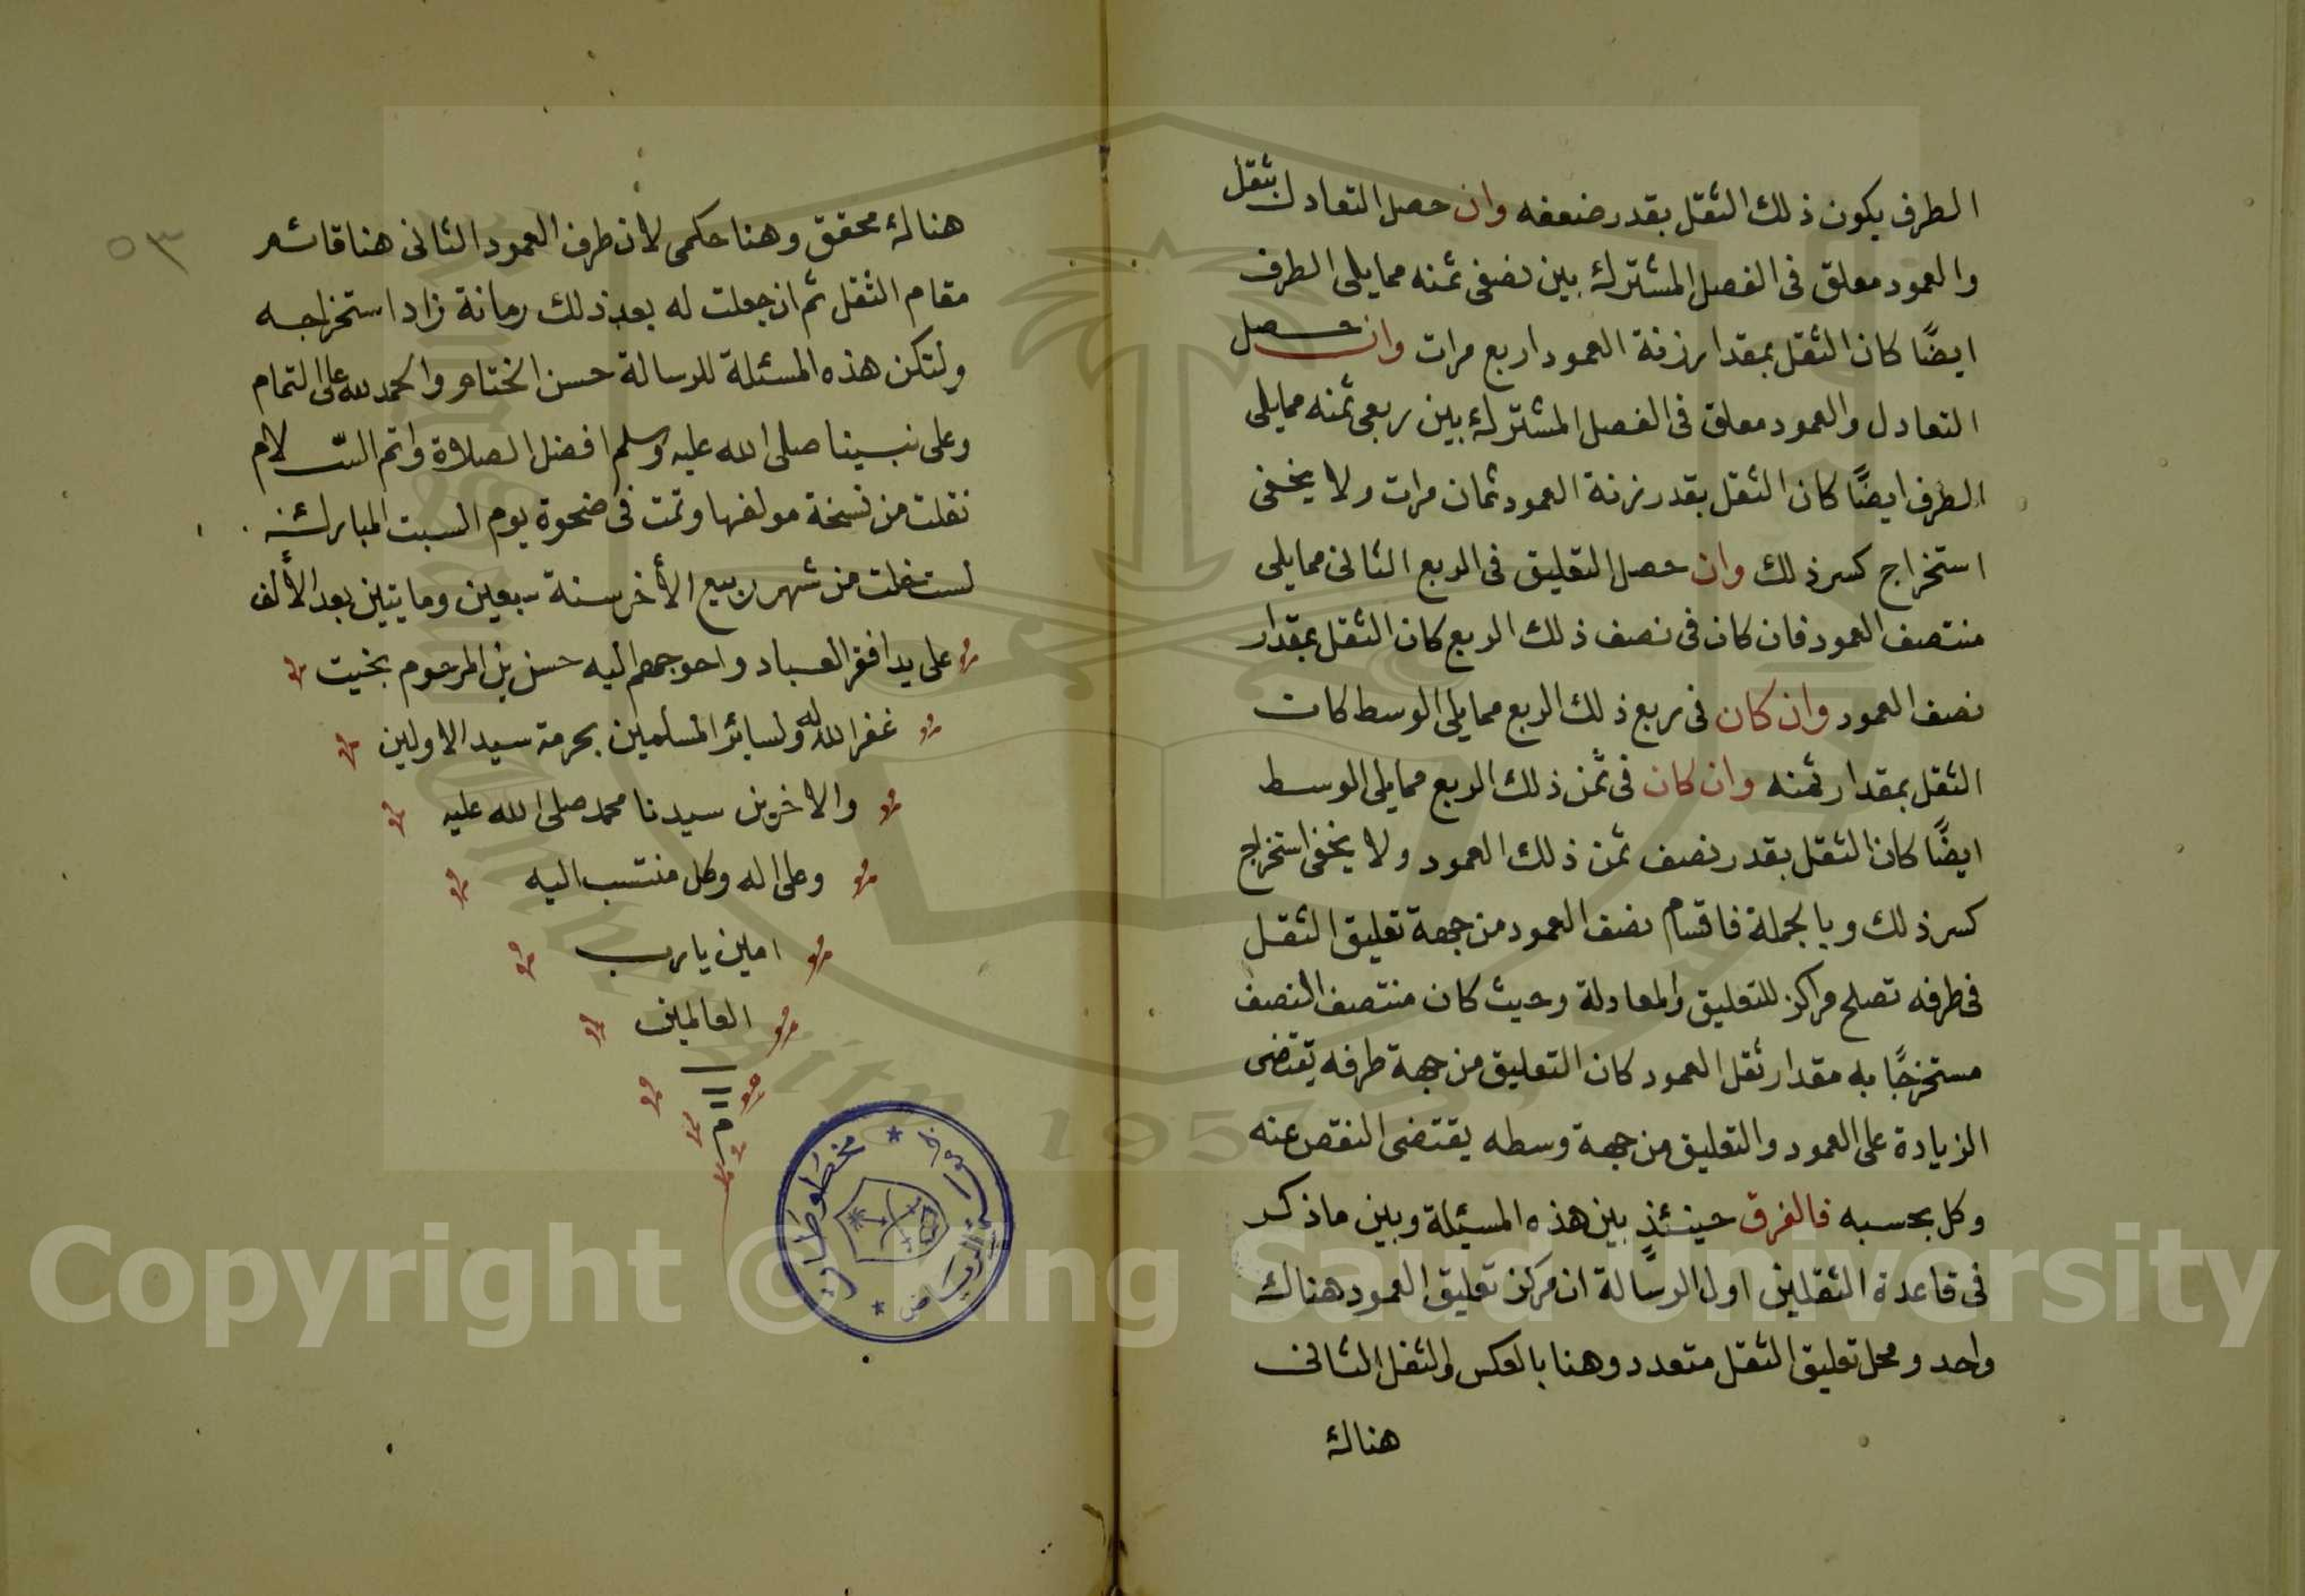 الطرف يكون ذلك الثقل بقدر ضعفه وان حصل التعادل بثقل
والعمود معلق فى الفصل المشترك بين نصفى ثمنه ممايلى الطرف
ايضًا كان الثقل بمقدار زنة العمود اربع مرات وان حصل
التعادل والعمود معلق فى الفصل المشترك بين ربعى ثمنه ممايلى
الطرف ايضًا كان الثقل بقدر زنة العمود ثمان مرات ولا يخفى
استخراج كسر ذلك وان حصل التعليق فى الربع الثانى ممايلى
منتصف العمود فان كان فى نصف ذلك الربع كان الثقل بمقدار
نصف العمود وان كان فى ربع ذلك الربع ممايلى الوسط كان
الثقل بمقدار ثمنه وان كان فى ثمن ذلك الربع ممايلى الوسط
ايضًا كان الثقل بقدر نصف ثمن ذلك العمود ولا يخفى استخراج
كسر ذلك وبالجملة فاقسام نصف العمود من جهة تعليق الثقل
فى طرفه تصلح مراكز للتعليق والمعادلة وحيث كان منتصف النصف
مستخرجًا به مقدار ثقل العمود كان التعليق من جهة طرفه يقتضى
الزيادة على العمود والتعليق من جهة وسطه يقتضى النقص عنه
وكل بحسبه فالفرق حينئذٍ بين هذه المسئلة وبين ماذكر
فى قاعدة الثقلين اول الرسالة ان مركز تعليق العمود هناك
واحد ومحل تعليق الثقل متعدد وهنا بالعكس والثقل الثانى
هناك
٥٣
هناك محقق وهنا حكمى لان طرف العمود الثانى هنا قائم
مقام الثقل ثم ان جعلت له بعد ذلك رمانة زاد استخراجه
ولتكن هذه المسئلة للرسالة حسن الختام والحمد لله على التمام
وعلى نبينا صلى الله عليه وسلم افضل الصلاة واتم السلام
نقلت من نسخة مولفها وتمت فى ضحوة يوم السبت المبارك
لست خلت من شهر ربيع الأخر سنة سبعين ومايتين بعد الألف
على يد افقر العباد واحوجهم اليه حسن بن المرحوم بخيت
غفر الله له ولسائر المسلمين بحرمة سيد الاولين
والاخرين سيدنا محمد صلى الله عليه
وعلى اله وكل منتسب اليه
امين يارب
العالمين
م
مخطوطات
جامعة الرياض
1957
Copyright © King Saud University